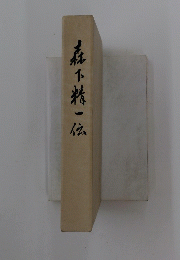 森下精一伝